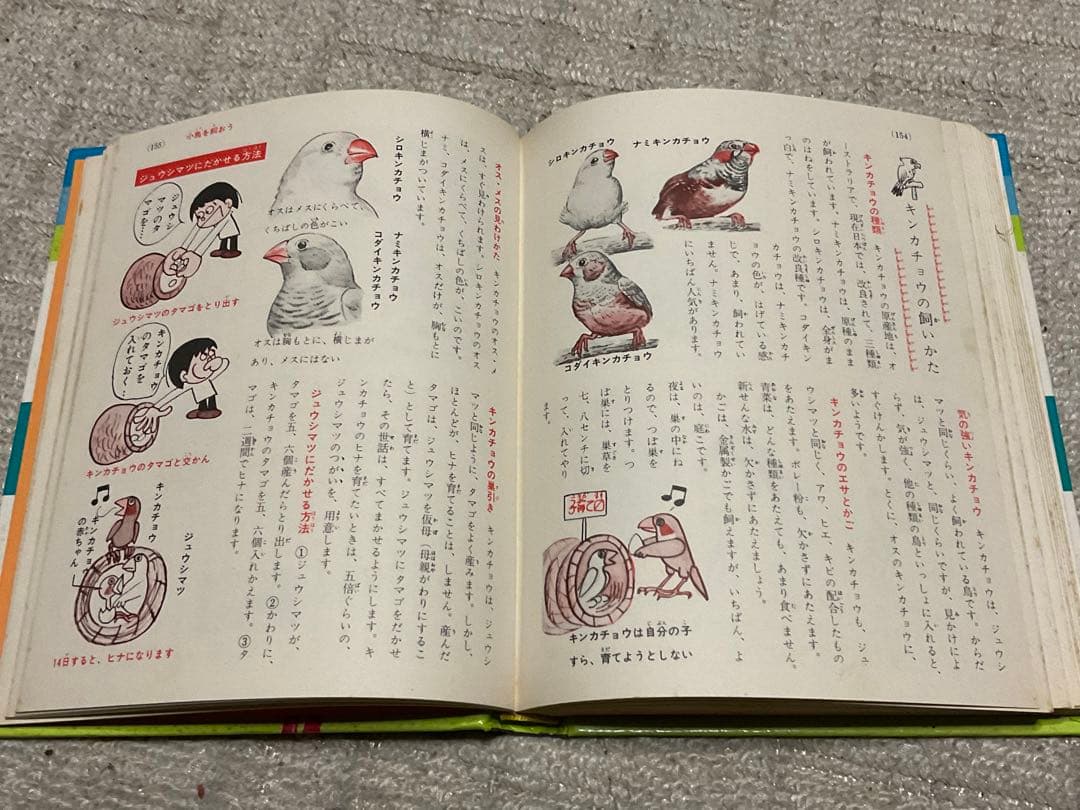 (154)
キンカチョウの飼いかた
キンカチョウの種類 キンカチョウの原産地は、オ
ーストラリアで、現在日本では、改良されて、三種類
が飼われています。ナミキンカチョウは、原種のまま
のはねをしています。シロキンカチョウは、全身がま
っ白で、ナミキンカチョウの改良種です。コダイキン
カチョウは、ナミキンカチ
ョウの色が、はげている感
じで、あまり、飼われてい
ません。ナミキンカチョウ
にいちばん人気があります。
ナミキンカチョウ
シロキンカチョウ
コダイキンカチョウ
気の強いキンカチョウ キンカチョウは、ジュウシ
マツと同じくらい、よく飼われている鳥です。からだ
は、ジュウシマツと、同じくらいですが、見かけによ
らず、気が強く、他の種類の鳥といっしょに入れると、
すぐけんかします。とくに、オスのキンカチョウに、
多いようです。
キンカチョウのエサとかご キンカチョウも、ジュ
ウシマツと同じく、アワ、ヒエ、キビの配合したもの
をあたえます。ボレー粉も、欠かさずにあたえます。
青菜は、どんな種類をあたえても、あまり食べません。
新せんな水は、欠かさずにあたえましょう。
かごは、金属製かごでも飼えますが、いちばん、よ
いのは、庭こです。
夜は、巣の中にね
るので、つぼ巣を
とりつけます。つ
ぼ巣には、巣草を
七、八センチに切
って、入れてやり
ます。
キンカチョウは自分の子
すら、育てようとしない
(155)
小鳥を飼おう
オス・メスの見わけかた キンカチョウのオス、メ
スは、すぐ見わけられます。シロキンカチョウのオス
は、メスにくらべて、くちばしの色が、こいのです。
ナミ、コダイキンカチョウは、オスだけが、胸もとに
横じまがついています。
シロキンカチョウ
オスはメスにくらべて、
くちばしの色がこい
ナミキンカチョウ
コダイキンカチョウ
オスは胸もとに、横じまが
あり、メスにはない
キンカチョウの巣引き キンカチョウは、ジュウシ
マツと同じように、タマゴをよく産みます。しかし、
ほとんどが、ヒナを育てることは、しません。産んだ
タマゴは、ジュウシマツを仮母（母親がわりにするこ
と）として育てます。ジュウシマツにタマゴをだかせ
たら、その世話は、すべてまかせるようにします。キ
ンカチョウのヒナを育てたいときは、五倍ぐらいの、
ジュウシマツのつがいを、用意します。
ジュウシマツにだかせる方法 ①ジュウシマツが、
タマゴを五、六個産んだらとり出します。②かわりに、
キンカチョウのタマゴを五、六個入れかえます。③タ
マゴは、二週間でヒナになります。
ジュウシマツにだかせる方法
ジュウシ
マツのタ
マゴを…
ジュウシマツのタマゴをとり出す
キンカチョウ
のタマゴを
入れておく…
キンカチョウのタマゴと交かん
ジュウシマツ
キンカチョウ
キンカチョウ
の赤ちゃん
14日すると、ヒナになります